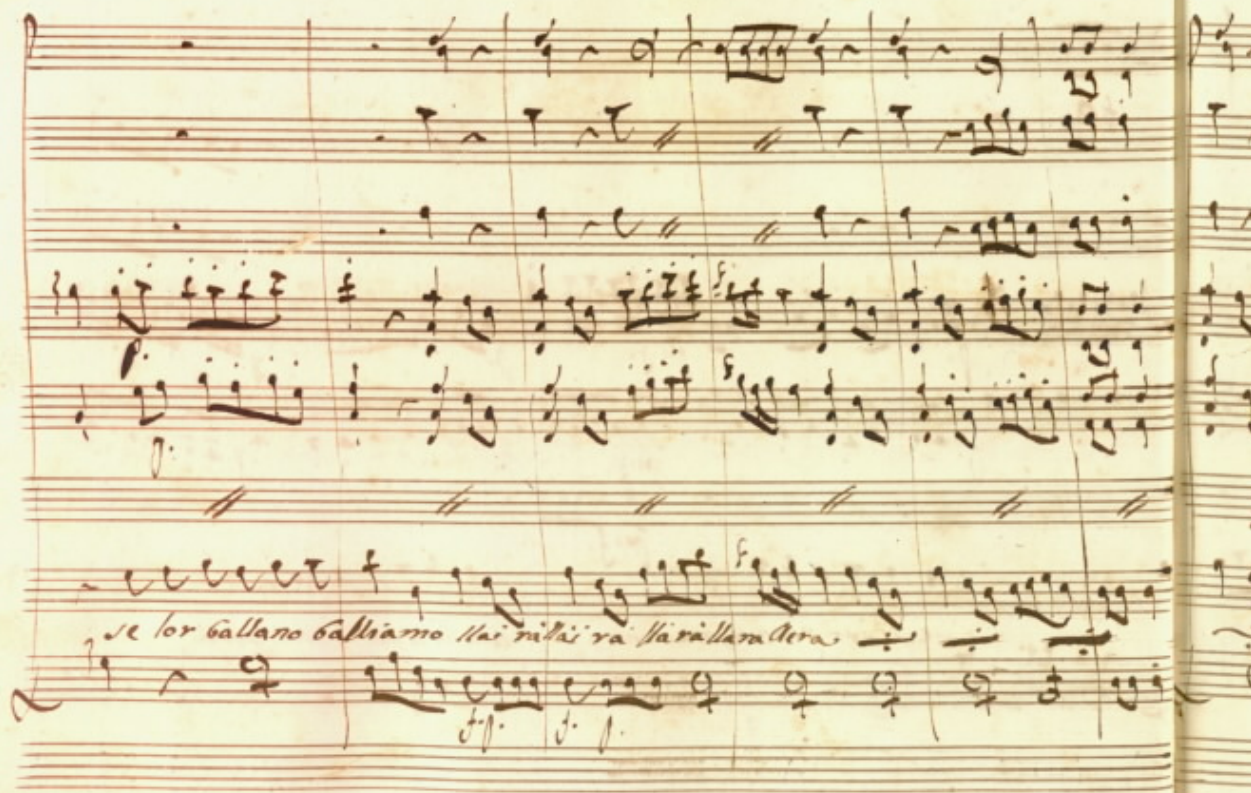 p.
p.
se lor ballano balliamo llai rallai ra llarallara llera
f.p. f. p.